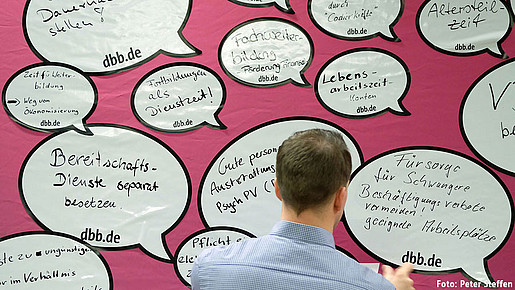 stellen!
dbb.de
Fachweiter-
bildung
Förderung Finanz
dbb.de
durch
Coaurkräfte
dbb.de
Altersteil-
zeit
dbb.de
Zeit für Weiter-
bildung
Weg von
Ökonomisierung
dbb.de
Fortbildungen
als
Dienstzeit!
dbb.de
Lebens-
arbeitszeit-
Konten
dbb.de
Bereitschafts-
Dienste separat
besetzen.
dbb.de
Gute
Ausstattung
Psych PV
Fürsorge
für Schwangere
Beschäftigungsverbote
vermeiden
geeignete Arbeitsplätze
dbb.de
Pflicht
zu ungünstigen
im Verhältnis
Foto: Peter Steffen